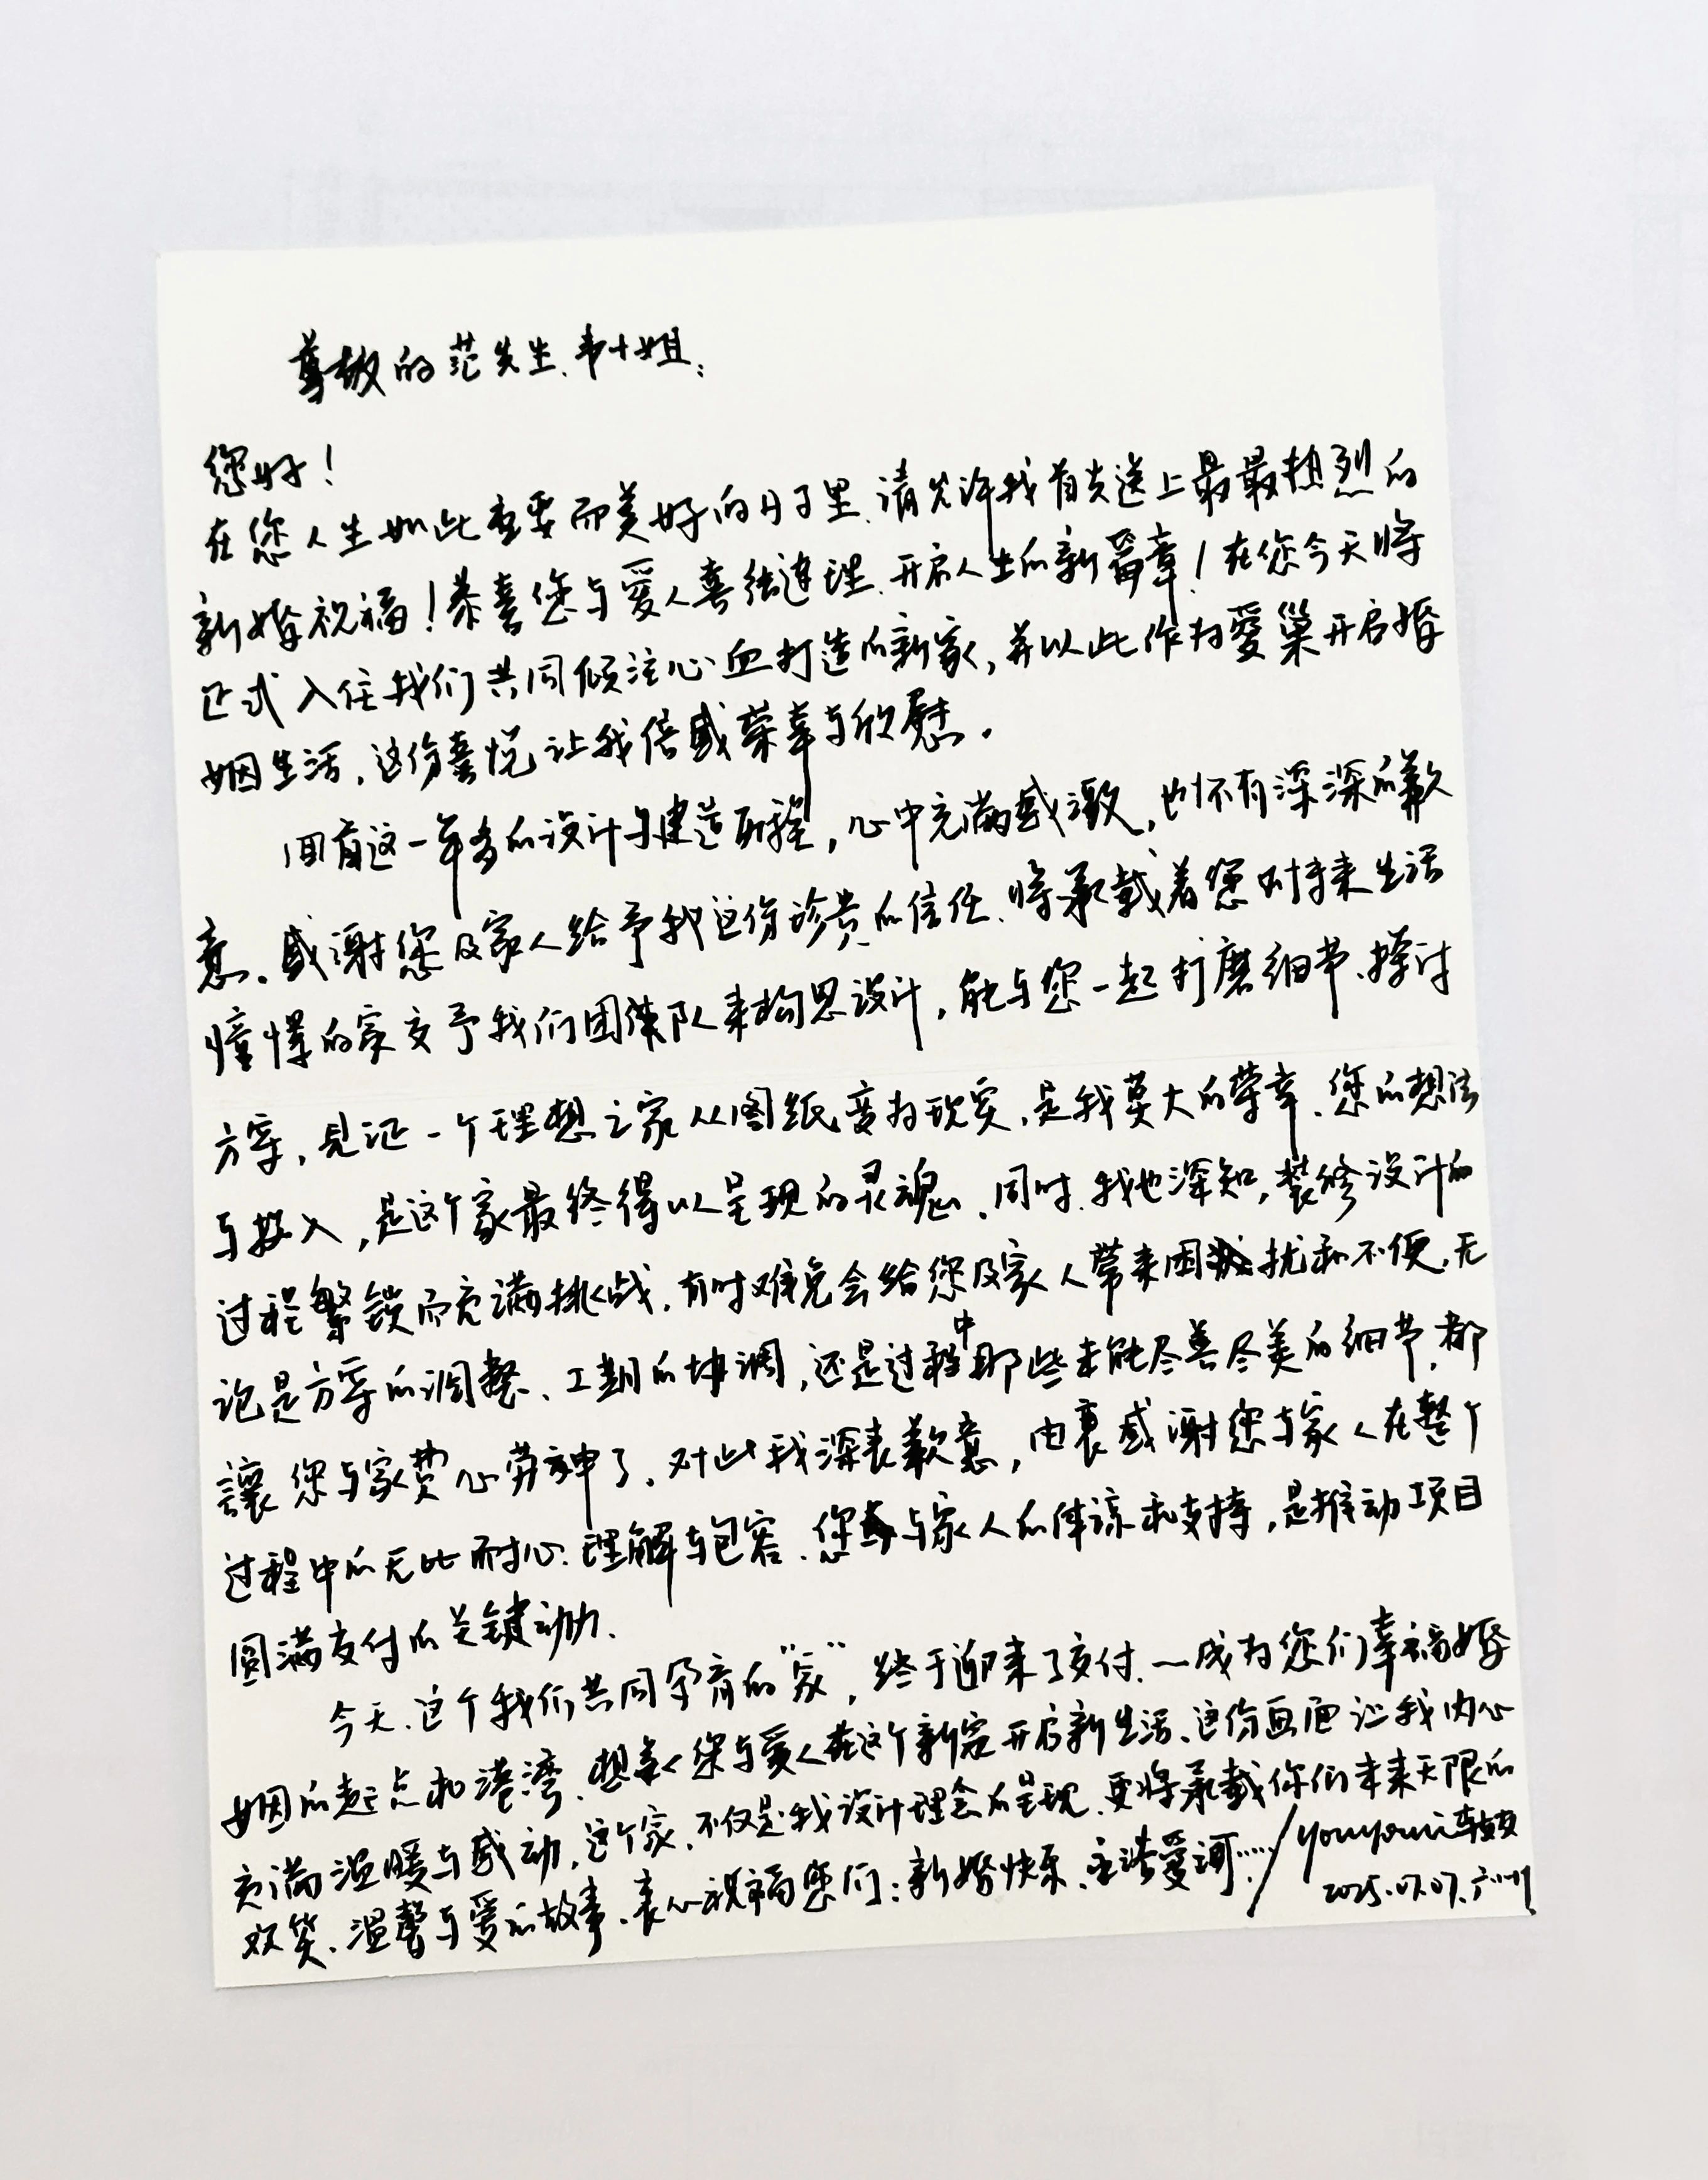 尊敬的范先生、韦小姐：
您好！
在您人生如此重要而美好的日子里、请允许我首先送上最最热烈的
新婚祝福！恭喜您与爱人喜结连理、开启人生的新篇章！在您今天将
正式入住我们共同倾注心血打造的新家，并以此作为愛巢开启婚
姻生活，这份喜悦让我倍感荣幸与欣慰。
回首这一年多的设计与建造历程，心中充满感激，也怀有深深的歉
意。感谢您及家人给予我这份珍贵的信任、将承载着您对未来生活
憧憬的家交予我们团队来构思设计，能与您一起打磨细节、探讨
方案，見证一个理想之家从图纸变为现实，是我莫大的荣幸、您的想法
与投入，是这个家最终得以呈现的灵魂。同时、我也深知，装修设计的
过程繁锁而充满挑战，有时难免会给您及家人带来困扰和不便，无
论是方案的调整、工期的协调，还是过程中那些未能尽善尽美的细节，都
讓您与家费心劳神了、对此我深表歉意，由衷感谢您与家人在整个
过程中的无比耐心、理解与包容、您与家人的体谅和支持，是推动项目
圆满交付的关键动力、
今天、这个我们共同孕育的“家”，终于迎来了交付、一成为您们幸福婚
姻的起点和港湾、想象您与爱人在这个新家开启新生活、这份画面让我内心
充满温暖与感动，这个家、不仅是我设计理念的呈现、更将承载你们未来无限的
欢笑、温馨与爱的故事、衷心祝福您们：新婚快乐、永浴愛河……/youyoui
2025.07.07.广州